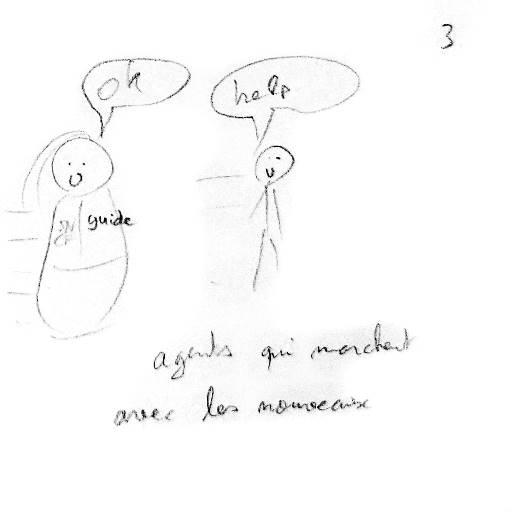 3
ok
help
guide
agents qui marchent
avec les nouveaux